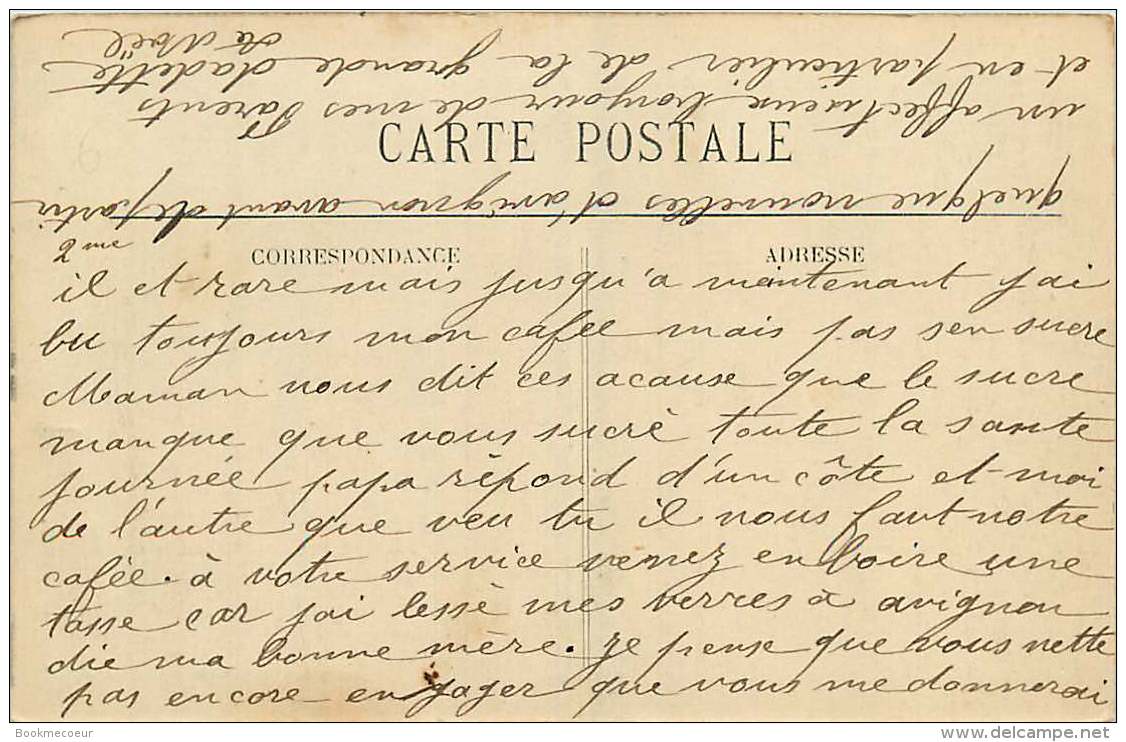 CARTE POSTALE
CORRESPONDANCE
ADRESSE
2me
il et rare mais jusqu'a maintenant jai
bu toujours mon cafee mais pas sen sucre
Maman nous dit ces acause que le sucre
manque que vous sucrè toute la sante
journée papa rèpond d'un côte et moi
de l'autre que veu tu il nous faut notre
cafée. à votre service venez en boire une
tasse car jai lessè mes verres à avignon
die ma bonne mère. je pense que vous nette
pas encore engager que vous me donnerai
quelque nouvelles d'avignon avant de partir
un affectueux bonjour de mes Parents
et en particulier de la grande dadette
de Noël
Bookmecoeur
delcampe.net